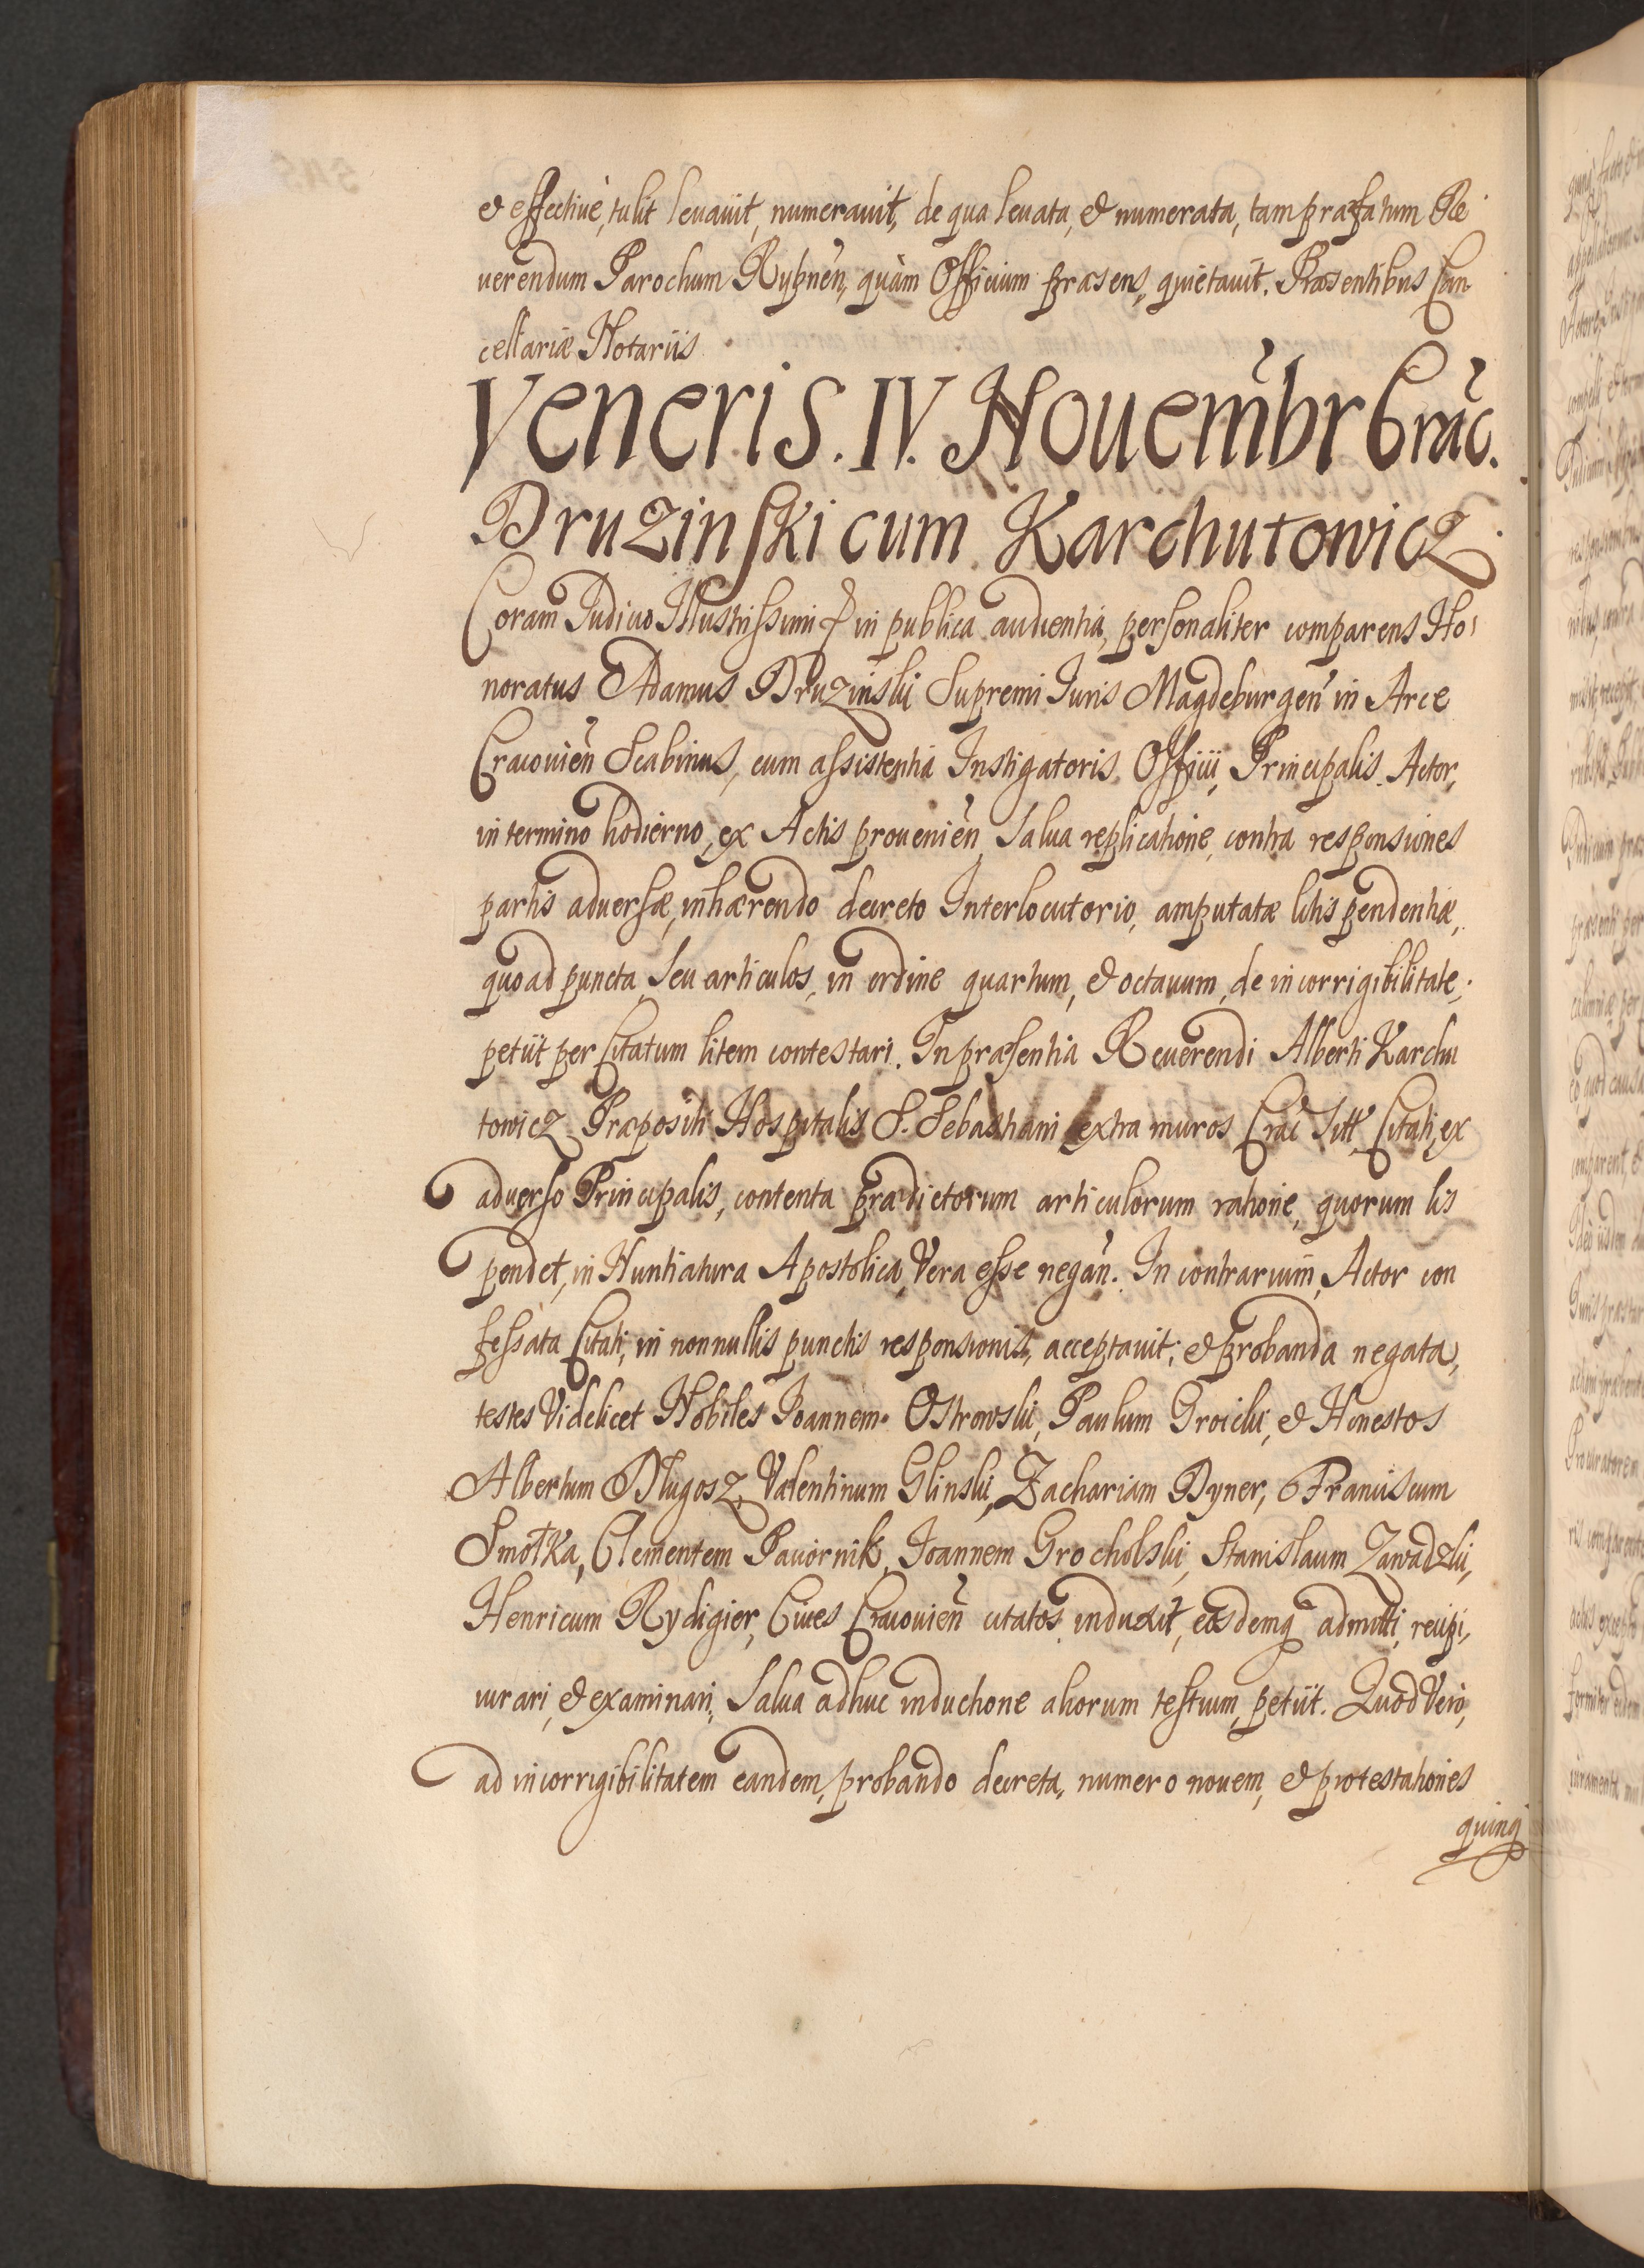 & effectiuè, tulit leuauit, numerauit, de qua leuata, & numerata, tam præfatum Re
uerendum Parochum Rybnen, quàm Officium præsens, quietauit. Præsentibus Can
cellariæ Notariis
Veneris. IV. Nouembr Crac.
Druzinski cum Karchutowicz.
Coram Iudicio Illustrissimi & in publica audientia, personaliter comparens Ho
noratus Adamus Druzinski Supremi Iuris Magdeburgen in Arce
Cracouien Scabinus, cum assistentia Instigatoris Officii, Principalis Actor,
in termino hodierno, ex Actis prouenien, salua replicatione, contra responsiones
partis aduersæ, inhærendo decreto Interlocutorio, amputatæ litis pendentiæ,
quoad puncta, seu articulos, in ordine quartum, & octauum, de incorrigibilitate;
petiit per Citatum litem contestari. In præsentia Reuerendi Alberti Karchu
towicz Præpositi Hospitalis S. Sebastiani extra muros Crac Citati, ex
aduerso Principalis, contenta prædictorum articulorum ratione, quorum lis
pendet, in Nuntiatura Apostolica, Vera esse negan. In contrarium, Actor con
fessata Citati, in nonnullis punctis responsionis, acceptauit; & probanda negata,
testes Videlicet Nobiles Ioannem Ostrowski, Paulum Groicki, & Honestos
Albertum Dlugosz, Valentinum Glinski, Zachariam Dyner, Franciscum
Smotka, Clementem Pauiornik, Ioannem Grocholski, Stanislaum Zawadzki,
Henricum Rydigier, Ciues Cracouien citatos induxit, eosdemq admitti, recipi,
iurari, & examinari; Salua adhuc inductione aliorum testium, petiit. Quod Vero,
ad incorrigibilitatem eandem, probando decreta, numero nouem, & protestationes
quinq